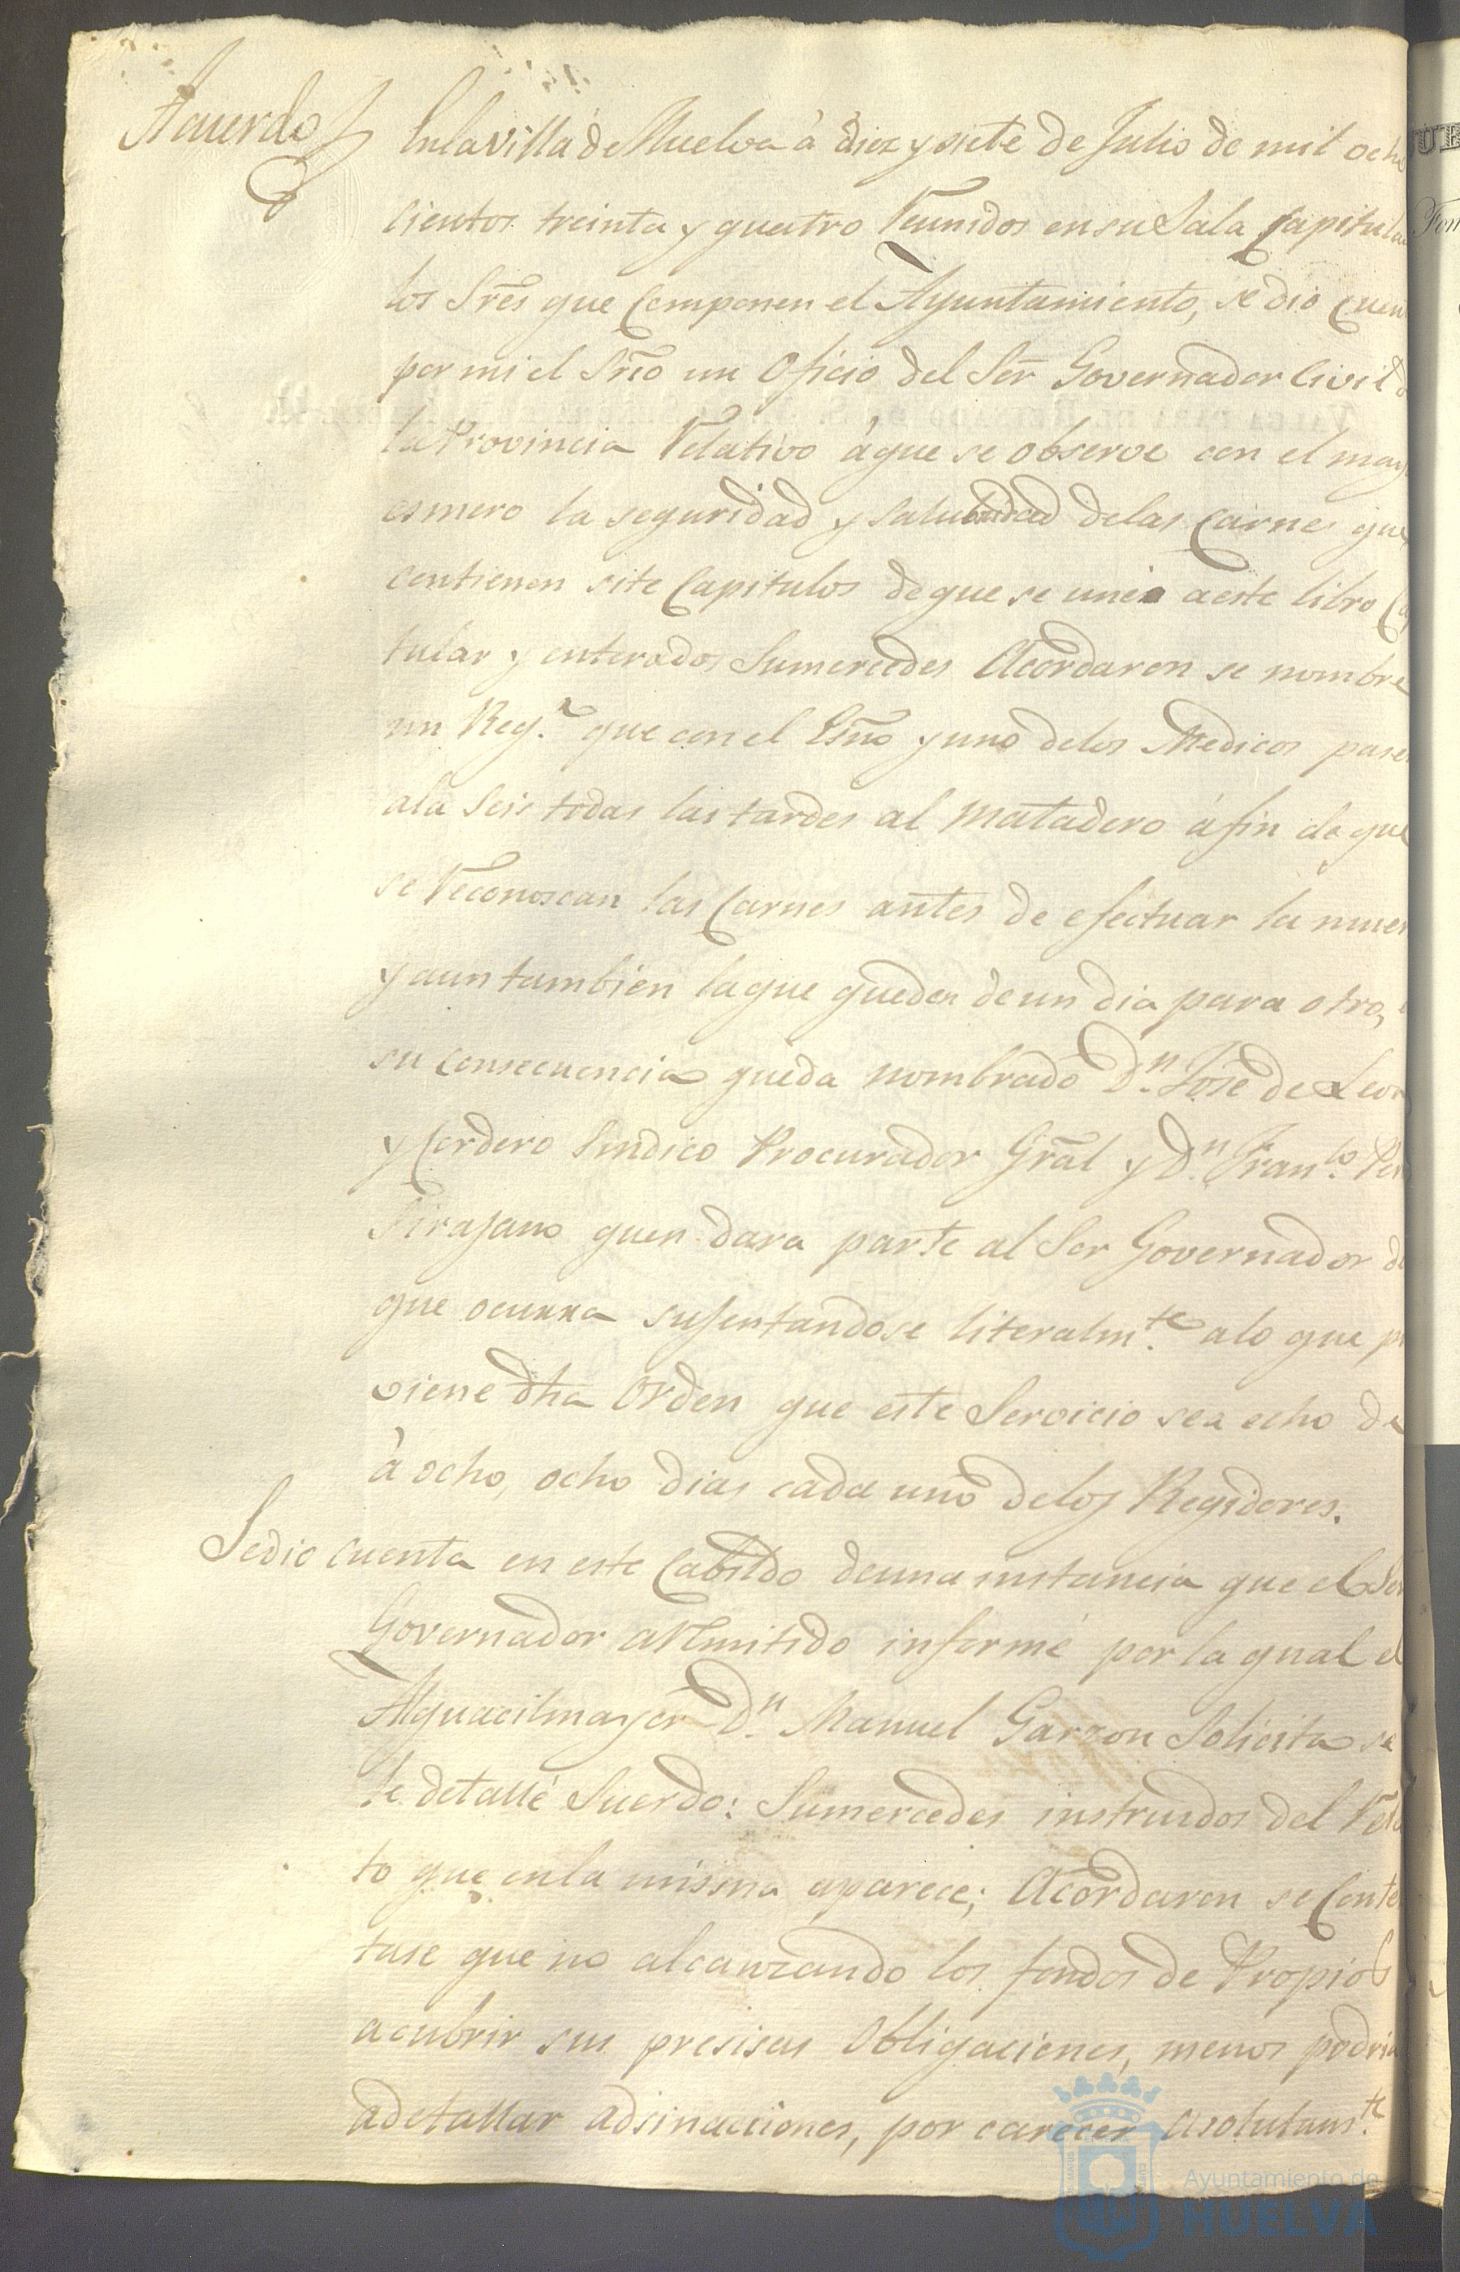 Acuerdo
En la Villa de Huelva à diez y siete de Julio de mil ocho
cientos treinta y quatro Reunidos en su Sala Capitular
los Sres que Componen el Ayuntamiento, se dio cuen
por mi el Srio un Oficio del Ser Governador Civil d
la Provincia Relativo àque se observe con el may
esmero la seguridad y salubridad delas Carnes que
contienen site Capitulos deque se unió a este libro Ca
tular y enterados Sumercedes Acordaron se nombre
un Reg.r que con el Esño y uno delos Medicos pase
ala Seis todas las tardes al Matadero áfin de que
se Reconoscan las Carnes antes de efectuar la muer
y aun tambien laque queden deun dia para otro,
su consecuencia queda nombrado D.n Jose de Leon
y Cordero Sindico Procurador Gral y D.n Fran.co
Tirajano quen dara parte al Ser Governador de
que ocurra sujentandose literalm.te alo que pr
viene dha Orden que este Servicio sea echo de
à ocho, ocho dias cada uno delos Regidores.
Sedio cuenta en este Cabildo deuna instancia que el Ser
Governador aRemitido informe por la qual el
Alguacilmayor D.n Manuel Garzon Solicita se
le detalle Suerdo: Sumercedes instruidos del Rela
to que en la misma aparece; Acordaron se Conte
tase que no alcanzando los fondos de Propios
acubrir sus presisas Obligaciones, menos podria
adetallar adsinaciones, por carecer asolutam.te
Ayuntamiento de
HUELVA